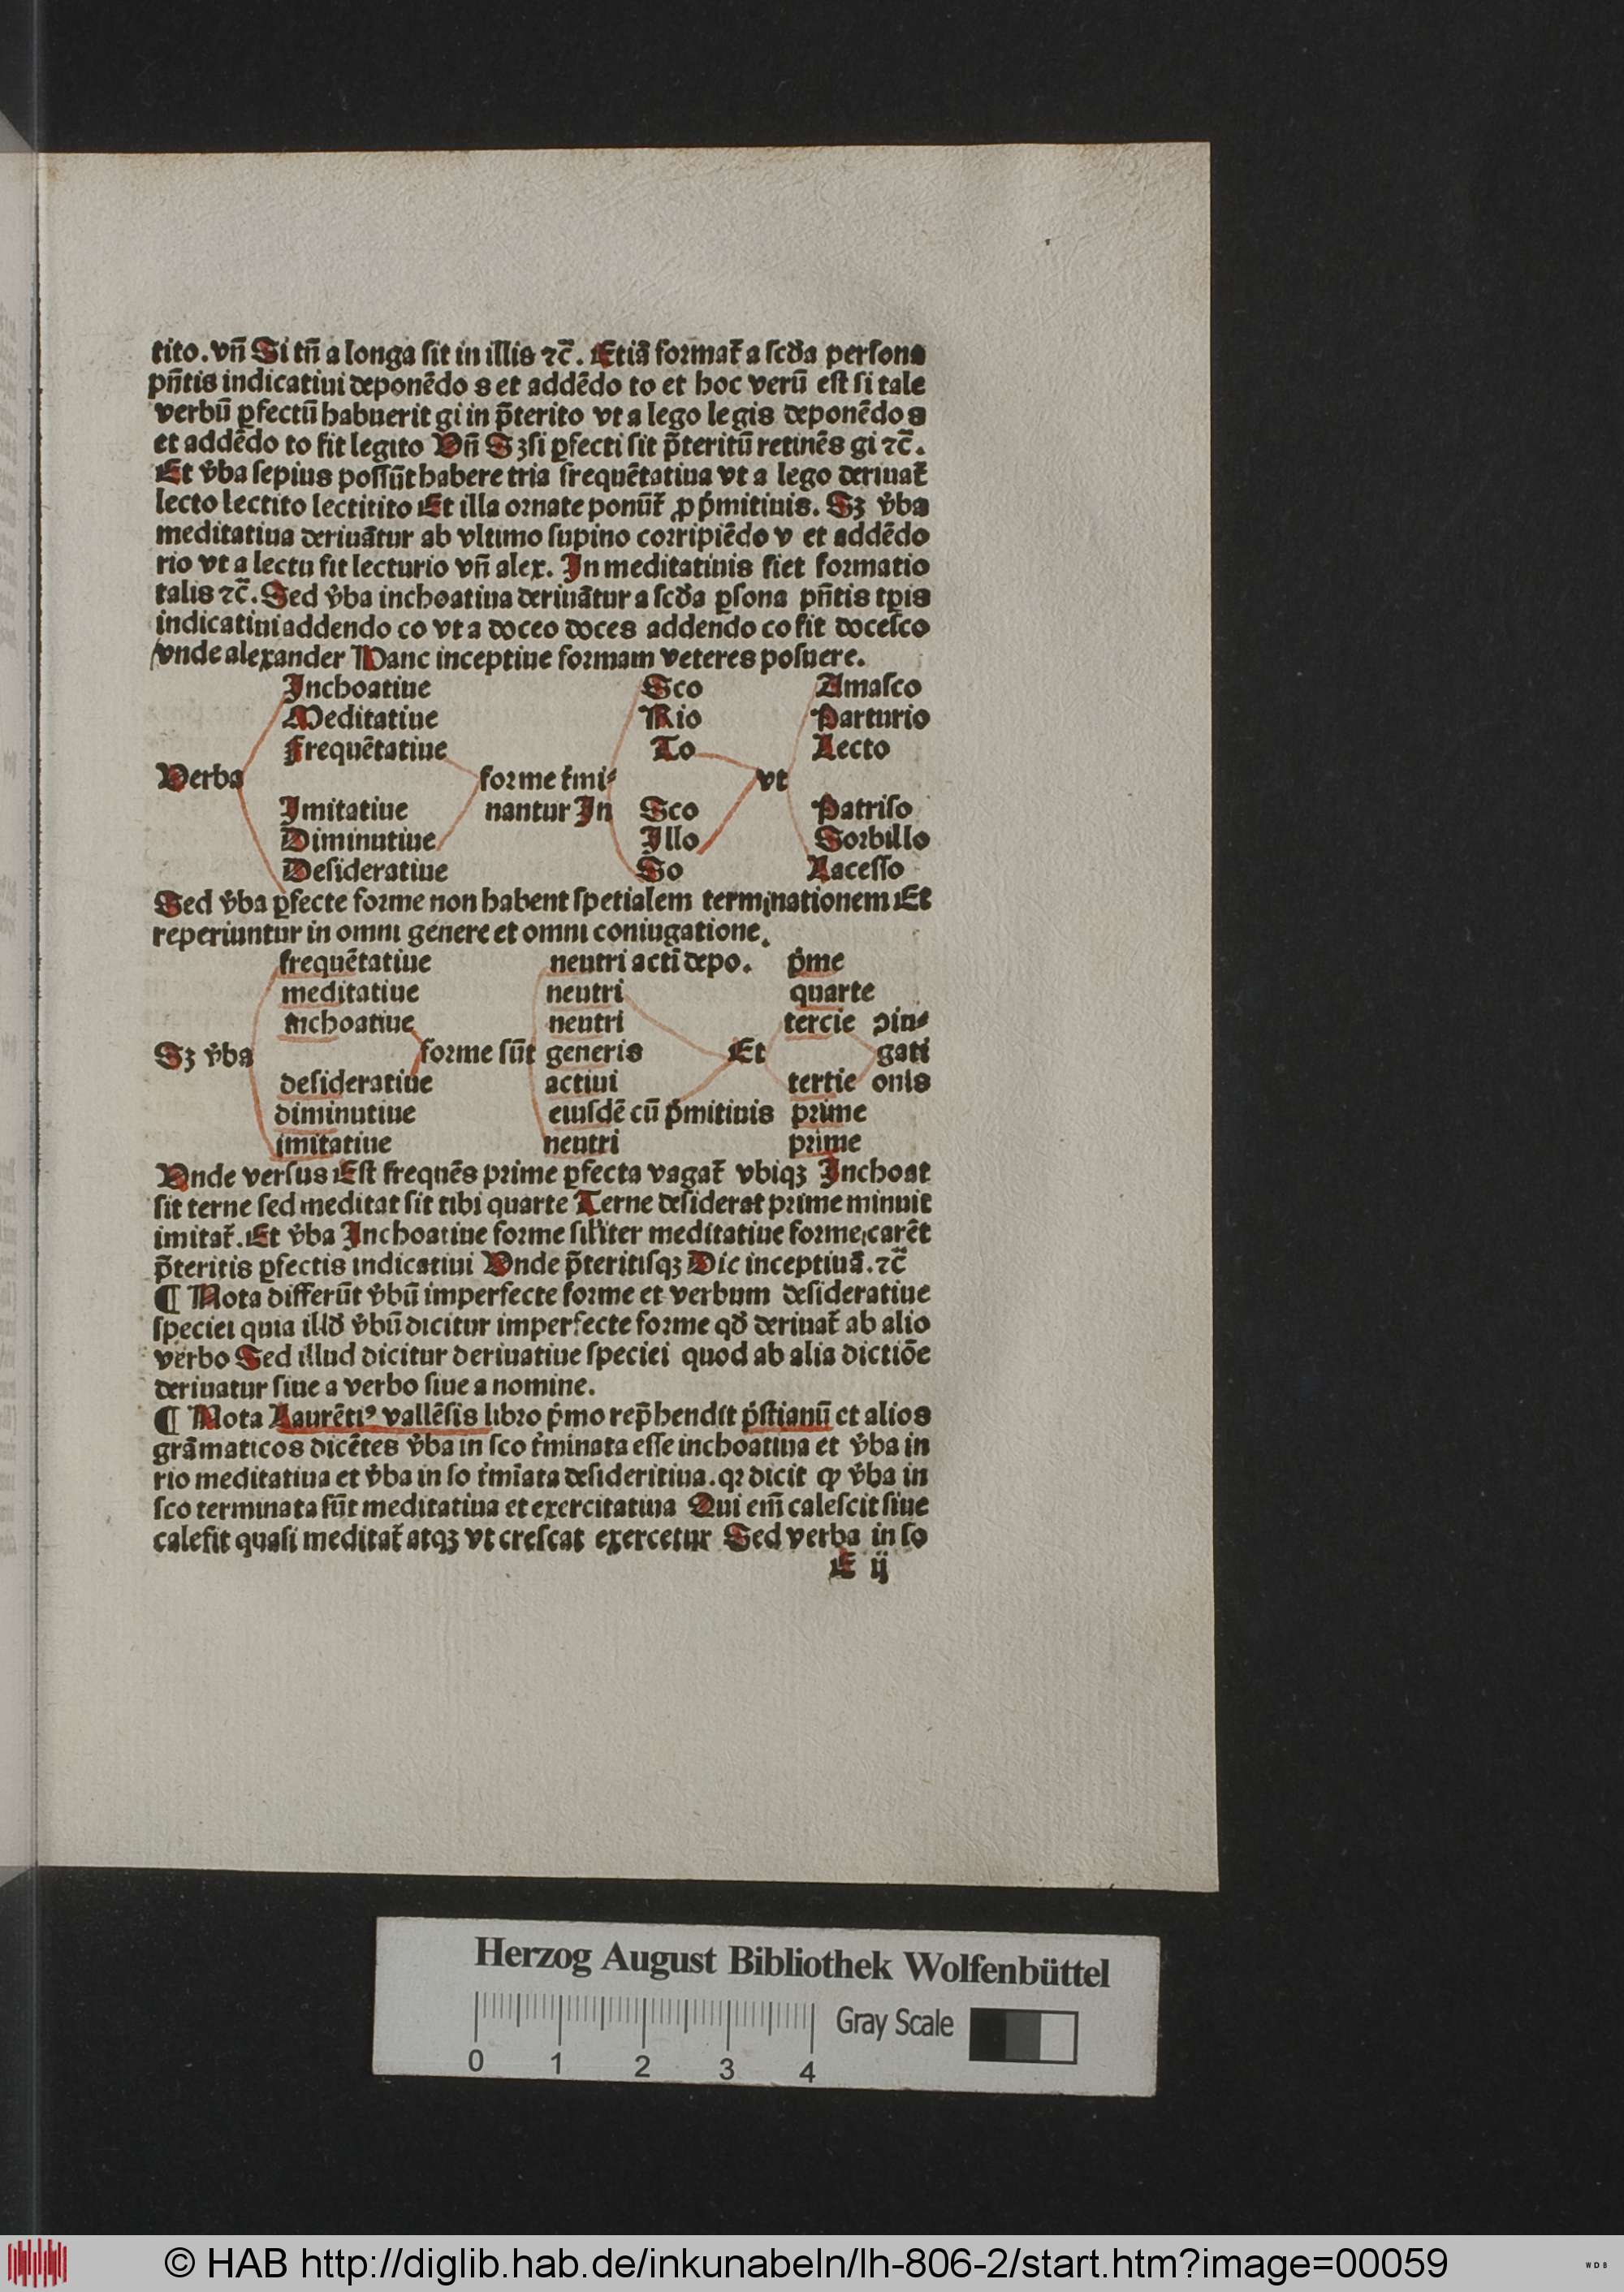 tito. vn̄ Si tn̄ a longa ſit in illis ⁊c̄. Etiā format᷑ a ſcd̓a perſona
pn̄tis indicatiui deponēdo s et addēdo to et hoc verū eſt ſi tale
verbū ꝑfectū habuerit gi in p̄terito vt a lego legis deponēdo s
et addēdo to fit legito Vn̄ Sꝫ ſi ꝑfecti ſit p̄teritū retinēs gi ⁊c̄.
Et v̓ba ſepius poſſūt habere tria frequētatiua vt a lego deriuat᷑
lecto lectito lectitito Et illa ornate ponūt᷑ ꝓ p̓mitiuis. Sꝫ v̓ba
meditatiua deriuātur ab vltimo ſupino corripiēdo v et addēdo
rio vt a lectu fit lecturio vn̄ alex. In meditatiuis fiet formatio
talis ⁊c̄. Sed v̓ba inchoatiua deriuātur a ſcd̓a ꝑſona pn̄tis tꝑis
indicatiui addendo co vt a doceo doces addendo co fit doceſco
vnde alexander Hanc inceptiue formam veteres poſuere.
Inchoatiue Sco Amaſco
Meditatiue Rio Parturio
Frequētatiue To Lecto
Verba forme t̓mi⸗ vt
Imitatiue nantur In Sco Patriſo
Diminutiue Illo Sorbillo
Deſideratiue So Laceſſo
Sed v̓ba ꝑfecte forme non habent ſpetialem terminationem Et
reperiuntur in omni genere et omni coniugatione.
frequētatiue neutri acti depo. p̓me
meditatiue neutri quarte
inchoatiue neutri tercie ꝯiu⸗
Sꝫ v̓ba forme ſūt generis Et gati
deſideratiue actiui tertie onis
diminutiue eiuſdē cū p̓mitiuis prime
imitatiue neutri prime
Vnde verſus Eſt frequēs prime ꝑfecta vagat᷑ vbiqꝫ Inchoat
ſit terne ſed meditat ſit tibi quarte Terne deſiderat prime minuit
imitat᷑. Et v̓ba Inchoatiue forme ſil̓iter meditatiue forme carēt
p̄teritis ꝑfectis indicatiui Vnde p̄teritiſqꝫ Dic inceptiuā. ⁊c̄
¶ Nota differūt v̓bū imperfecte forme et verbum deſideratiue
ſpeciei quia illd̓ v̓bū dicitur imperfecte forme qd̓ deriuat᷑ ab alio
verbo Sed illud dicitur deriuatiue ſpeciei quod ab alia dictiōe
deriuatur ſiue a verbo ſiue a nomine.
¶ Nota Laurētiꝰ vallēſis libro p̓mo rep̄hendit p̓ſtianū et alios
grāmaticos dicētes v̓ba in ſco t̓minata eſſe inchoatiua et v̓ba in
rio meditatiua et v̓ba in ſo t̓mīata deſideritiua. qꝛ dicit ꝙ v̓ba in
ſco terminata ſūt meditatiua et exercitatiua Qui em̄ caleſcit ſiue
calefit quaſi meditat᷑ atqꝫ vt creſcat exercetur Sed verba in ſo
E ij
Herzog August Bibliothek Wolfenbüttel
Gray Scale
0 1 2 3 4
© HAB http://diglib.hab.de/inkunabeln/lh-806-2/start.htm?image=00059
WDB